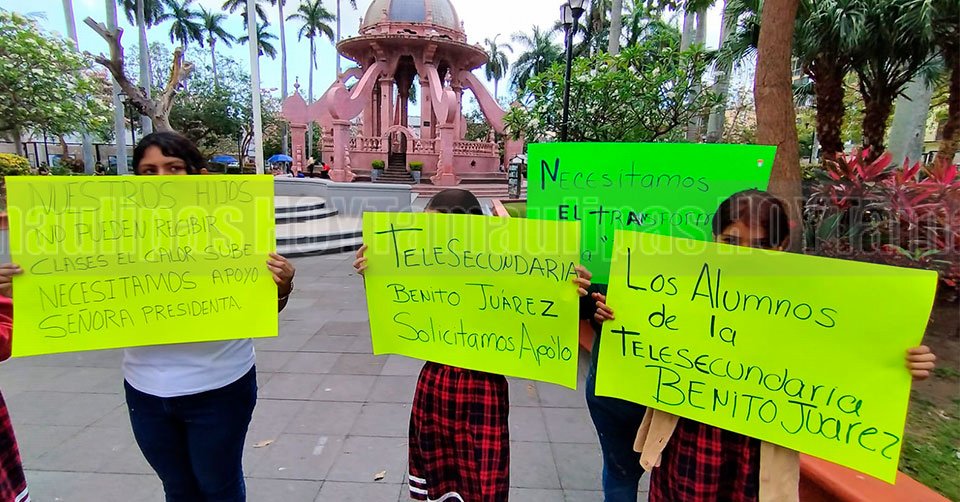 NUESTROS HIJOS
NO PUEDEN RECIBIR
CLASES EL CALOR SUBE
NECESITAMOS APOYO
SEÑORA PRESIDENTA
TELESECUNDARIA
BENITO JUÁREZ
Solicitamos Apoyo
NECESITAMOS
EL TRANSFORM
Los Alumnos
de la
TELESECUNDARIA
BENITO JUÁREZ
HOYTamaulipas
HOYTamaulipas
HOYTamaulipas